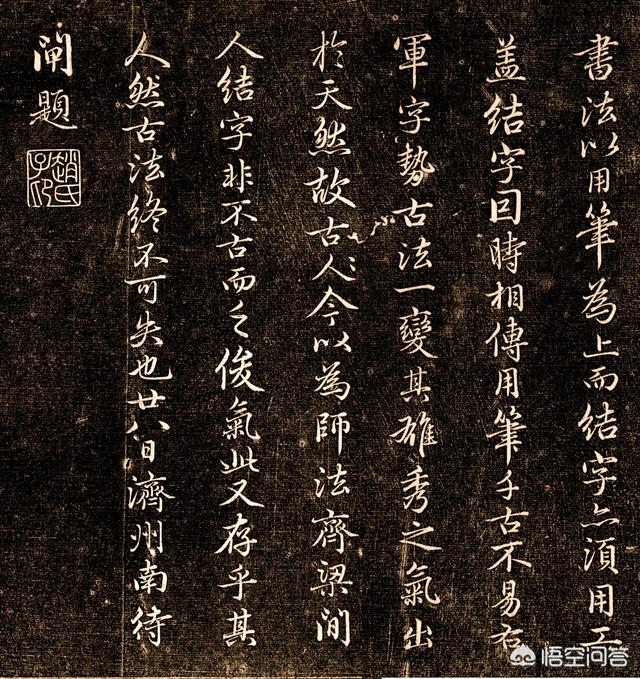 書法以用筆為上而結字亦須用工
盖結字因時相傳用筆千古不易右
軍字勢古法一變其雄秀之氣出
於天然故古人今以為師法齊梁間
人結字非不古而乏俊氣此又存乎其
人然古法終不可失也廿八日濟州南待
閘題
趙氏子印
悟空问答